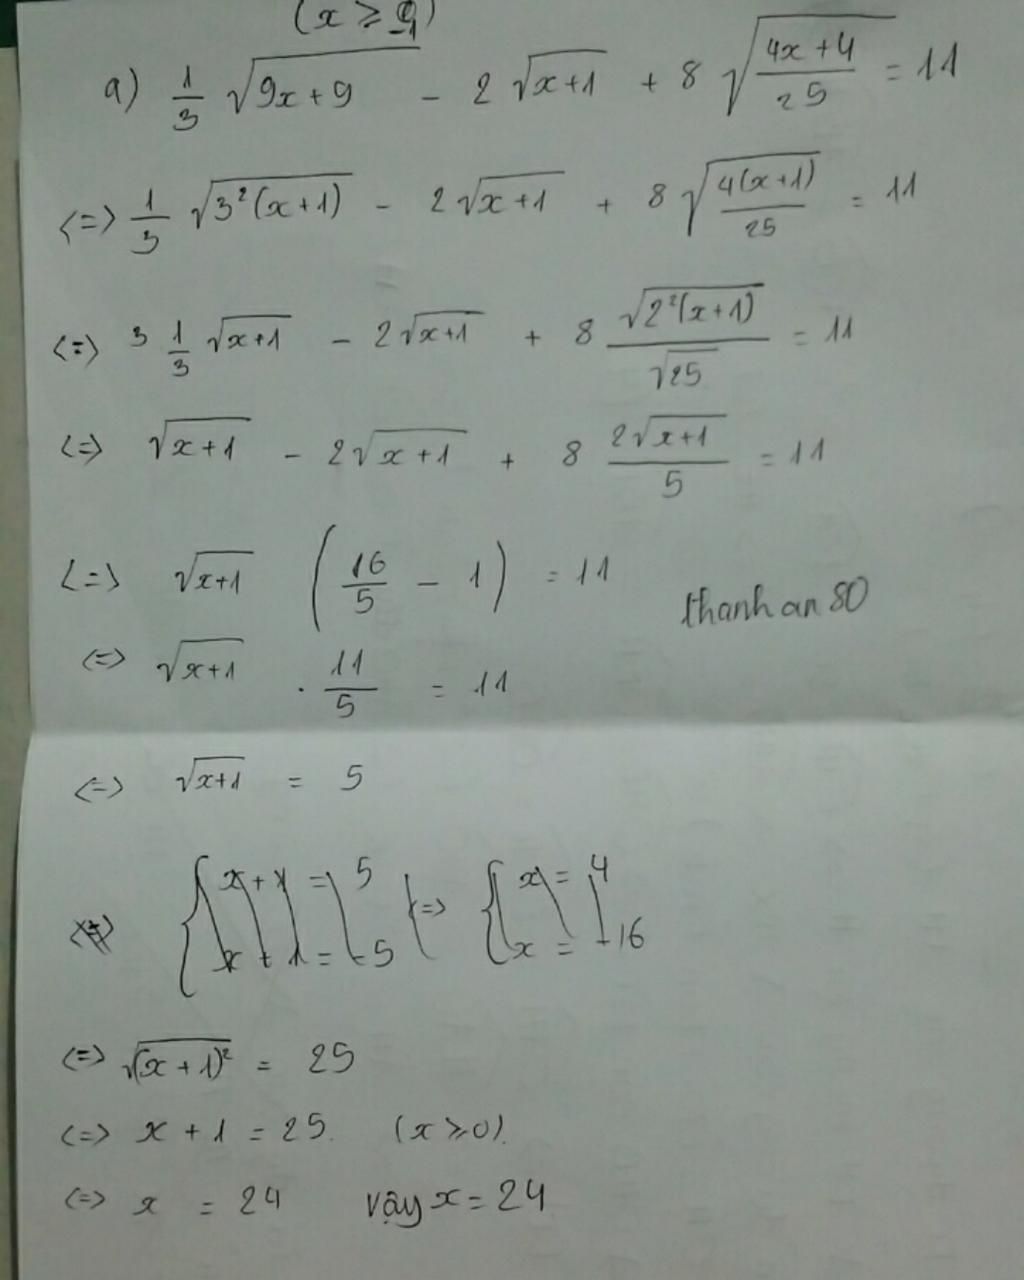 (x ≥ -1)
a) 1/3 √(9x+9) - 2√(x+1) + 8√((4x+4)/25) = 11
<=> 1/3 √(3²(x+1)) - 2√(x+1) + 8√(4(x+1)/25) = 11
<=> 3 1/3 √(x+1) - 2√(x+1) + 8 √(2²(x+1))/√25 = 11
<=> √(x+1) - 2√(x+1) + 8 2√(x+1)/5 = 11
<=> √(x+1) (16/5 - 1) = 11
thanh an 80
<=> √(x+1) . 11/5 = 11
<=> √(x+1) = 5
<=> { x+1 = 5 <=> { x = 4
x+1 = -5 x = -16
<=> √(x+1)² = 25
<=> x+1 = 25. (x ≥ 0).
<=> x = 24 vậy x = 24